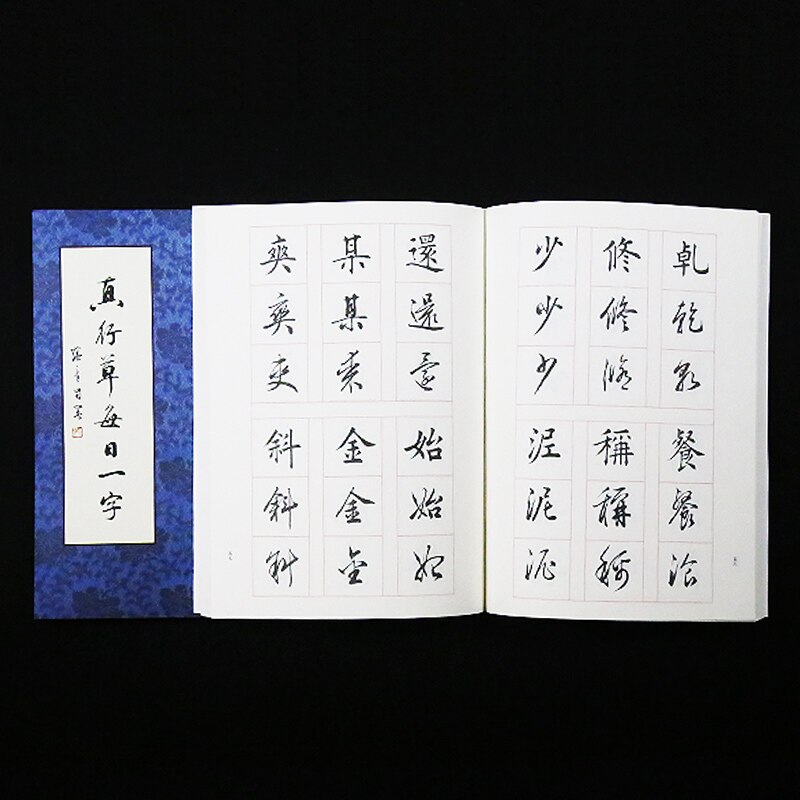 真行草每日一字
乹乾乾
修修修
少少少
餐餐湌
稱稱稱
泥泥泥
還還還
某某某
爽爽爽
始始始
金金金
斜斜斜